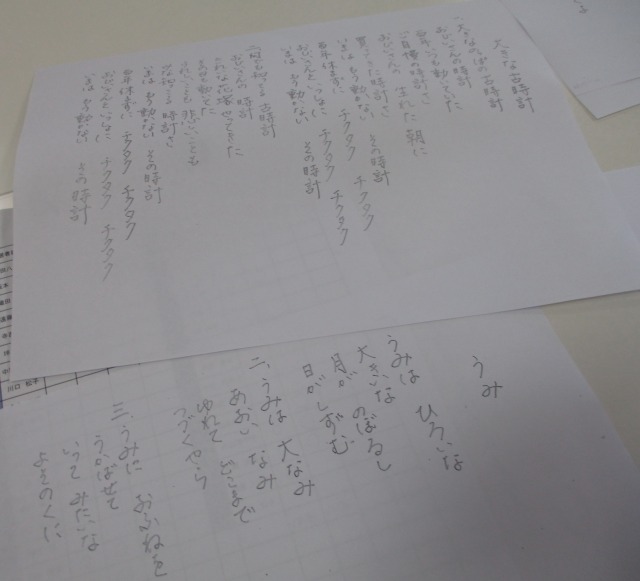 大きな古時計
一、大きなのっぽの古時計
おじいさんの時計
百年いつも動いてた
ご自慢の時計さ
おじいさんの 生れた 朝に
買ってきた時計さ
いまは もう動かない その時計
百年休まずに チクタク チクタク
おじいさんといっしょに チクタク チクタク
いまは もう動かない その時計
二、何でも知ってる 古時計
おじいさんの 時計
きれいな花嫁やってきた
その日も動いてた
うれしいことも 悲しいことも
みな知ってる 時計さ
いまは もう動かない その時計
百年休まずに チクタク チクタク
おじいさんといっしょに チクタク チクタク
いまは もう動かない その時計
うみ
うみは ひろいな
大きいな
月が のぼるし
日がしずむ
二、うみは 大なみ
あおい なみ
ゆれて どこまで
つづくやら
三、うみに おふねを
うかばせて
いって みたいな
よそのくに
川口 松子